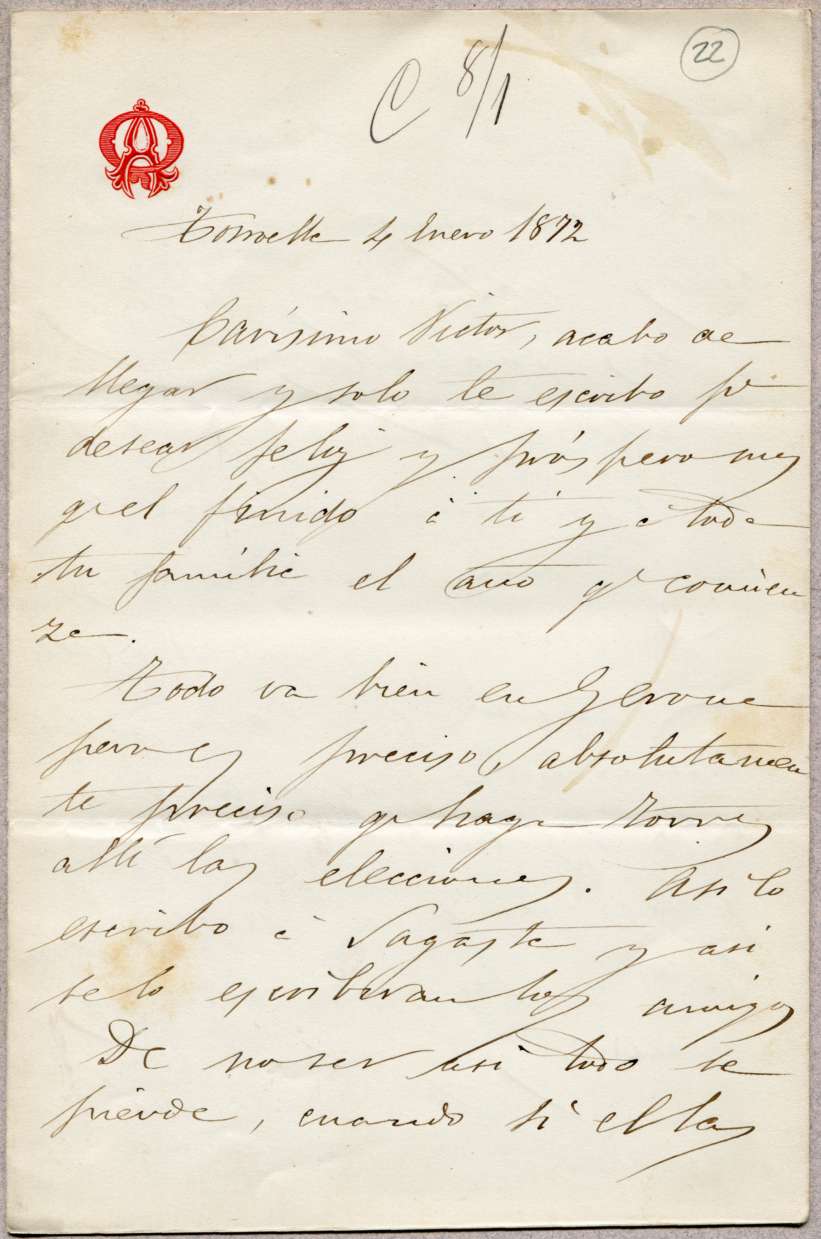 22
C 8/1
Torroella 4 Enero 1872
Carísimo Victor, acabo de
llegar y solo te escribo pª
desear feliz y próspero mas
qe el finido á ti y á toda
tu familia el año qe comien
za.
Todo va bien en Gerona
pero es preciso, absolutamen
te preciso qe haga Torres
allí las elecciones. Asi lo
escribo á Sagasta y asi
se lo escribiran los amigos
De no ser asi todo se
pierde, cuando si el las